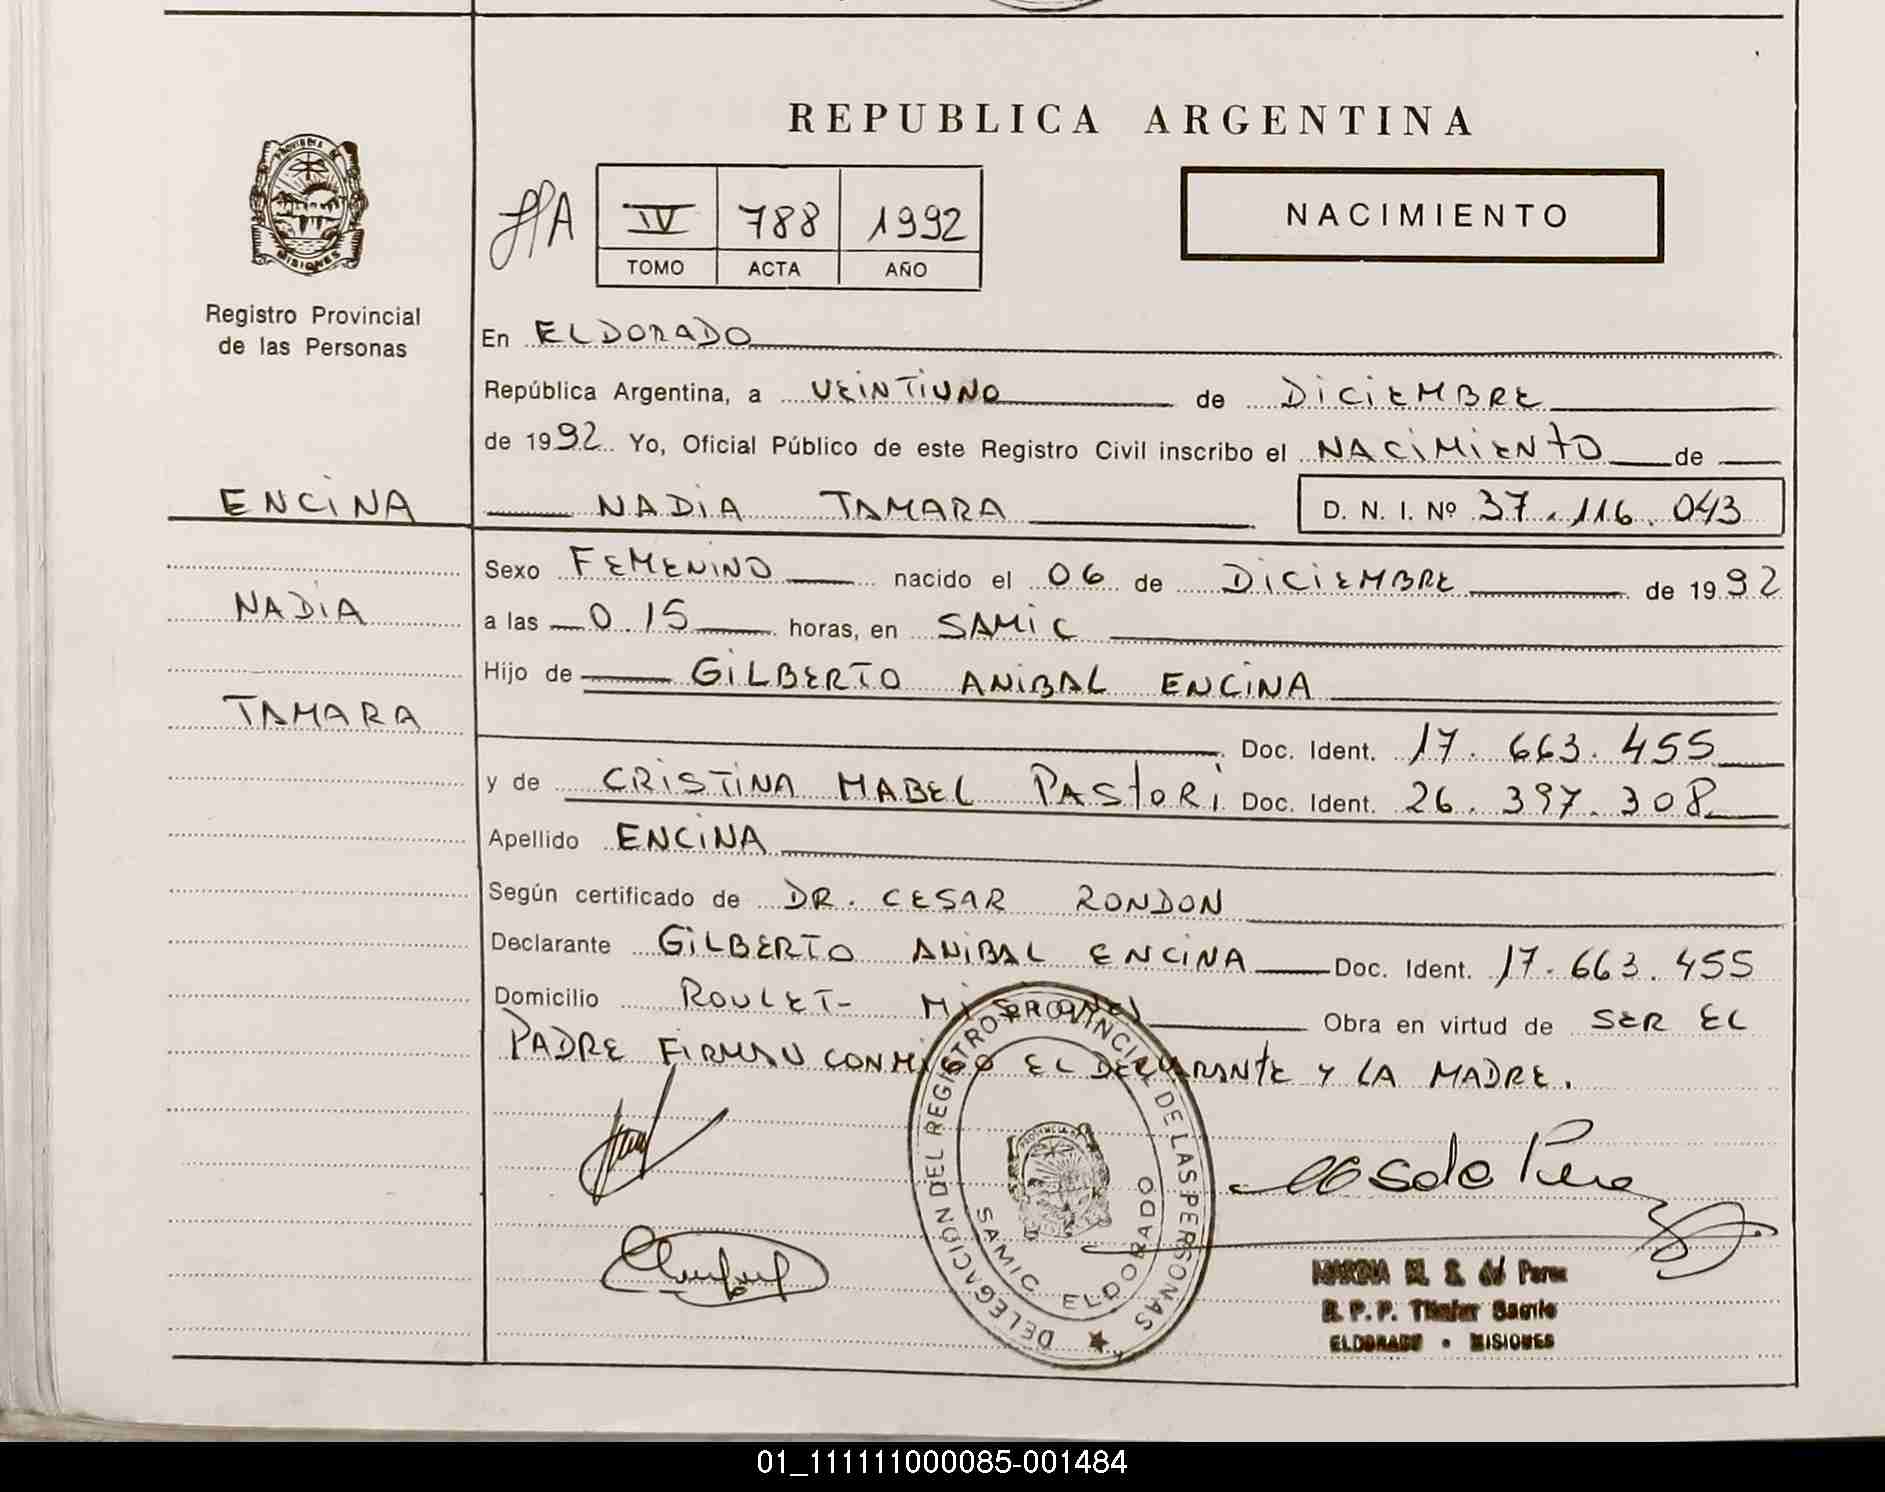 REPUBLICA ARGENTINA
PROVINCIA DE
MISIONES
Registro Provincial
de las Personas
IV 788 1992
TOMO ACTA AÑO
NACIMIENTO
En ELDORADO
República Argentina, a VEINTIUNO de DICIEMBRE
de 1992 Yo, Oficial Público de este Registro Civil inscribo el NACIMIENTO de
ENCINA
NADIA TAMARA D. N. I. Nº 37.116.043
Sexo FEMENINO nacido el 06 de DICIEMBRE de 1992
NADIA
a las 0.15 horas, en SAMIC
Hijo de GILBERTO ANIBAL ENCINA
TAMARA
Doc. Ident. 17.663.455
y de CRISTINA MABEL PASTORI Doc. Ident. 26.397.308
Apellido ENCINA
Según certificado de DR. CESAR RONDON
Declarante GILBERTO ANIBAL ENCINA Doc. Ident. 17.663.455
Domicilio ROULET- MISIONES Obra en virtud de SER EL
PADRE FIRMAN CONMIGO EL DECLARANTE Y LA MADRE.
DELEGACION DEL REGISTRO PROVINCIAL DE LAS PERSONAS
SAMIC ELDORADO
MARINA M. S. de Perez
R. P. P.
ELDORADO • MISIONES
01_111111000085-001484